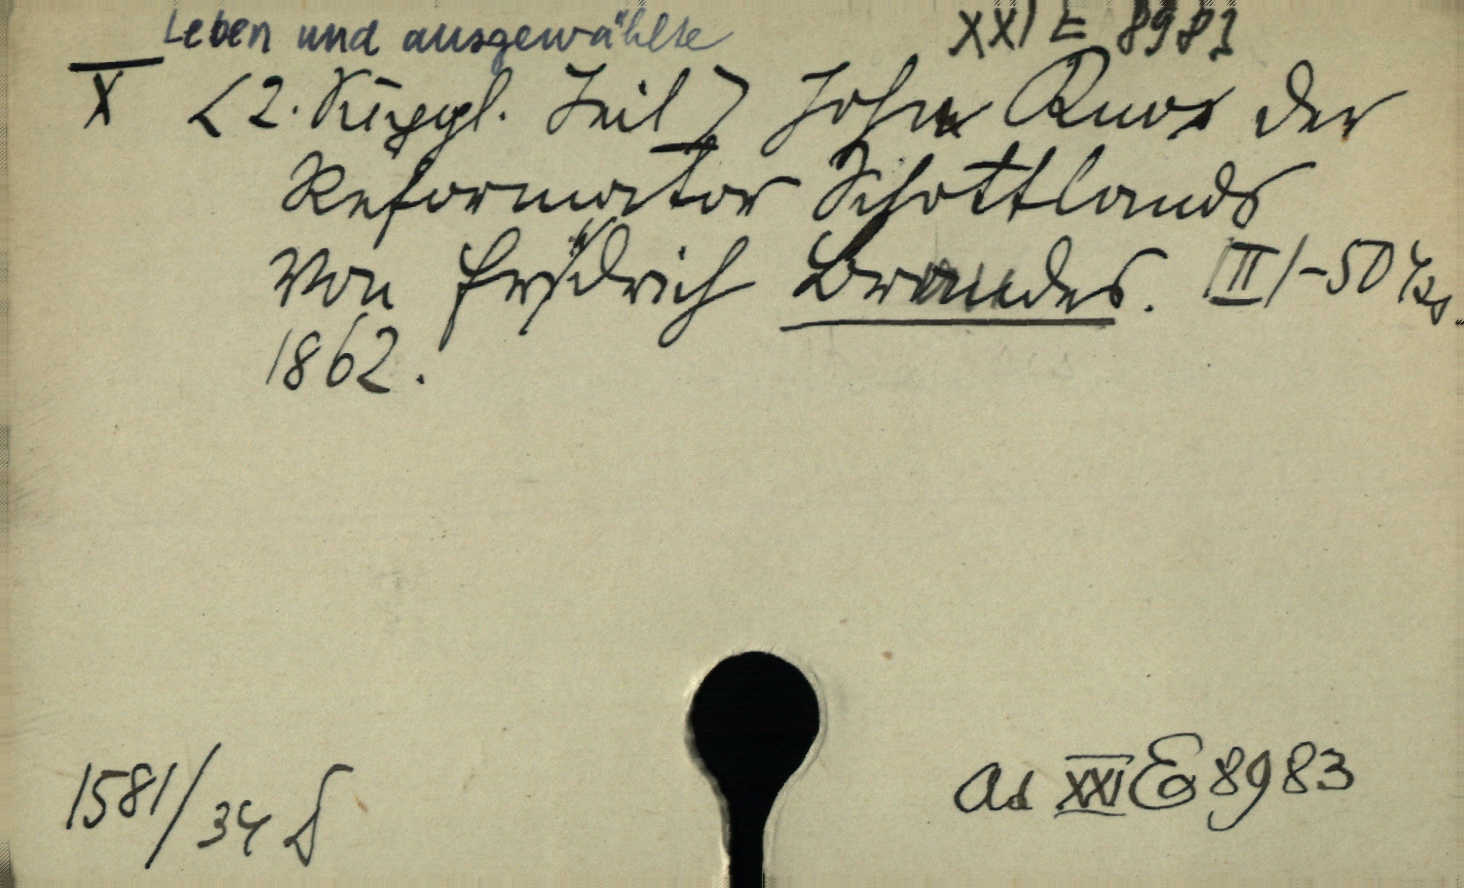 Leben und ausgewählte XXI E 8983
X <2. Suppl. Teil> John Knox der
Reformator Schottlands
Von Friedrich Brandes. III/-50
1862.
1581/34 S
ad XXI E 8983